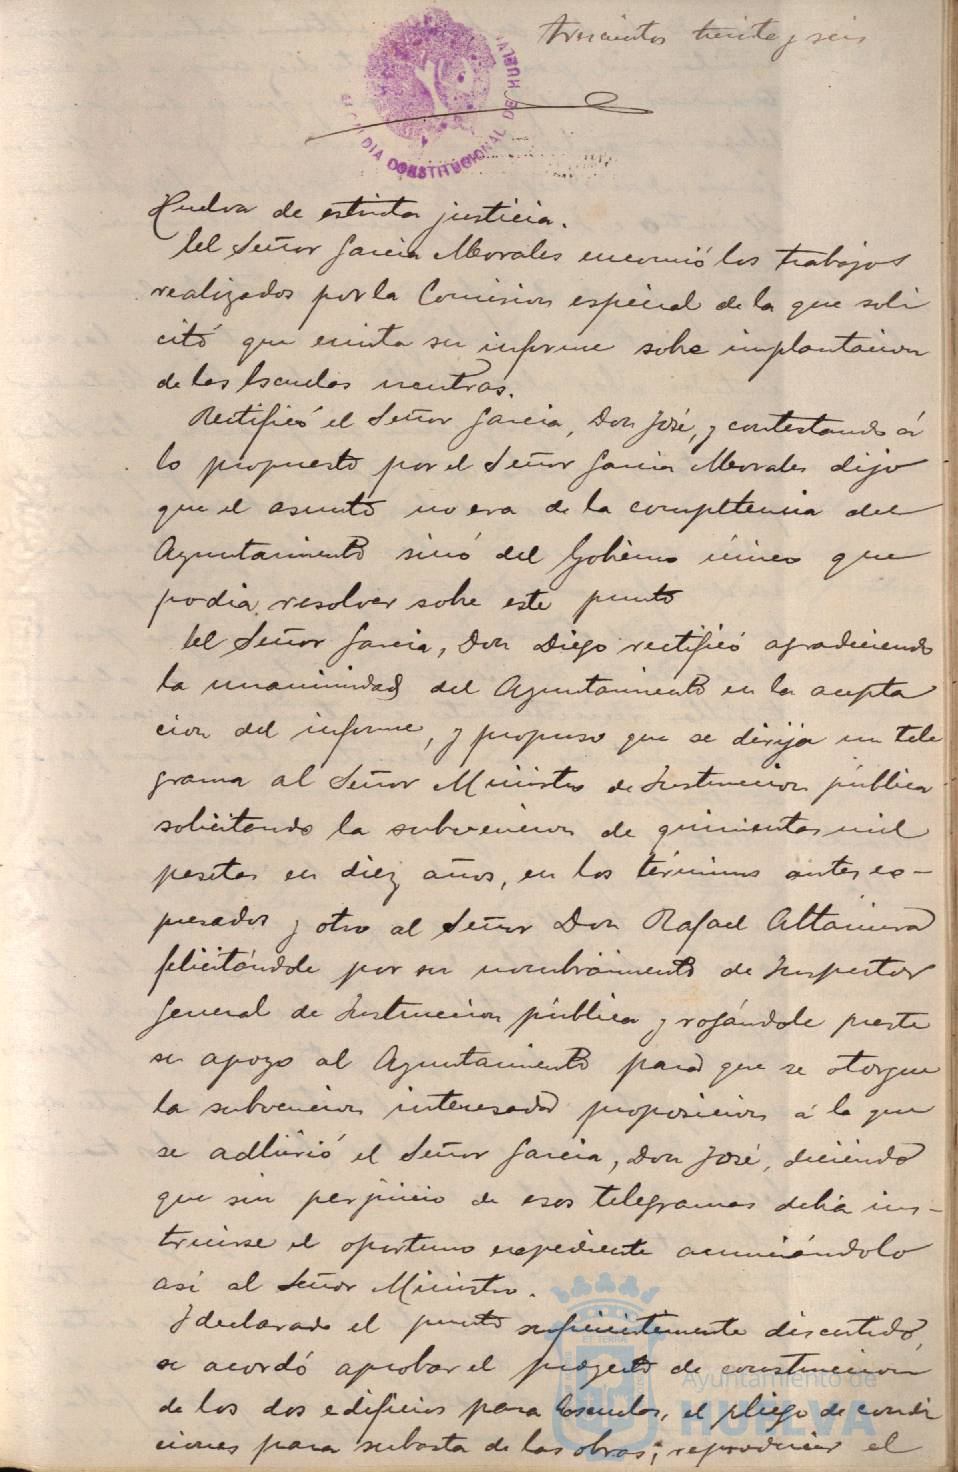 trescientos treinta y seis
ALCALDIA CONSTITUCIONAL DE HUELVA
Huelva de estricta justicia.
El Señor Garcia Morales encomió los trabajos
realizados por la Comision especial de la que soli
citó que emita su informe sobre implantacion
de las Escuelas neutras.
Rectificó el Señor Garcia, Don José, y contestando á
lo propuesto por el Señor Garcia Morales dijo
que el asunto no era de la competencia del
Ayuntamiento sinó del Gobierno único que
podia resolver sobre este punto
El Señor Garcia, Don Diego rectificó agradeciendo
la unanimidad del Ayuntamiento en la acepta
cion del informe, y propuso que se dirija un tele
grama al Señor Ministro de Instruccion pública
solicitando la subvencion de quinientas mil
pesetas en diez años, en los términos antes es-
presados y otro al Señor Don Rafael Altamira
felicitándole por su nombramiento de Inspector
General de Instruccion pública y rogándole preste
su apoyo al Ayuntamiento para que se otorgue
la subvencion interesada proposicion á la que
se adhirió el Señor Garcia, Don José, diciendo
que sin perjuicio de esos telegramas debia ins-
truirse el oportuno expediente anunciándolo
asi al Señor Ministro.
Y declarado el punto suficientemente discutido,
se acordó aprobar el proyecto de construccion
de los dos edificios para Escuelas, el pliego de condi
ciones para subasta de las obras; reproducir el
Ayuntamiento de
HUELVA